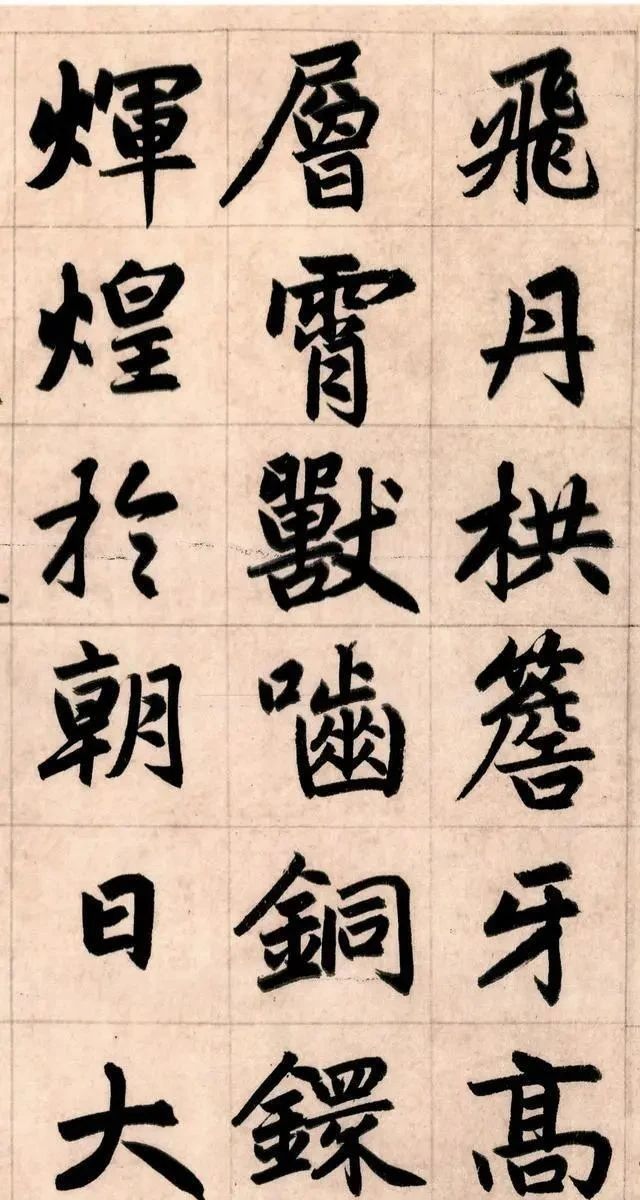 飛丹栱簷牙高
層霄獸嚙銅鐶
煇煌於朝日大